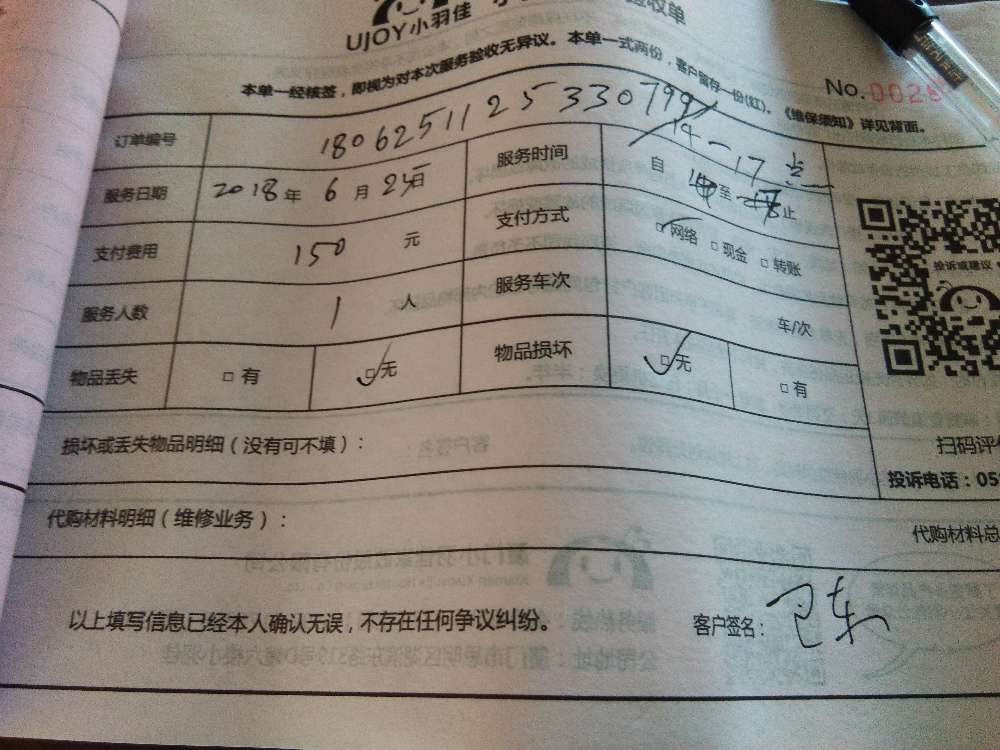 UJOY小羽佳
收单
本单一经核签，即视为对本次服务验收无异议。本单一式两份，客户留存一份(红)。《维保须知》详见背面。
No.0026
订单编号 180625112533079
服务日期 2018年 6月 25日 服务时间 自 至 止 14-17点
支付费用 150 元 支付方式 □网络 □现金 □转账
服务人数 1 人 服务车次 车/次
物品丢失 □有 □无 物品损坏 □无 □有
投诉或建议
损坏或丢失物品明细（没有可不填）：
扫码评
投诉电话：05
代购材料明细（维修业务）：
代购材料总
以上填写信息已经本人确认无误，不存在任何争议纠纷。 客户签名：